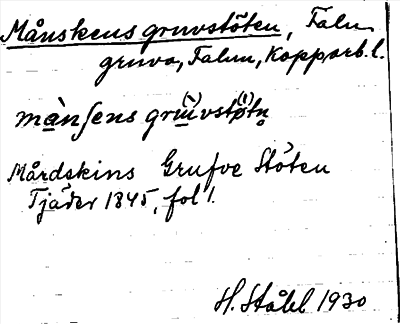 Månskens gruvstöten, Falu
gruva, Falun, Kopparb. l.
mànſens gru̇̀vstøtn̥
Mårdskins Grufve Stöten
Tjäder 1845, fol 1.
H. Ståhl 1930